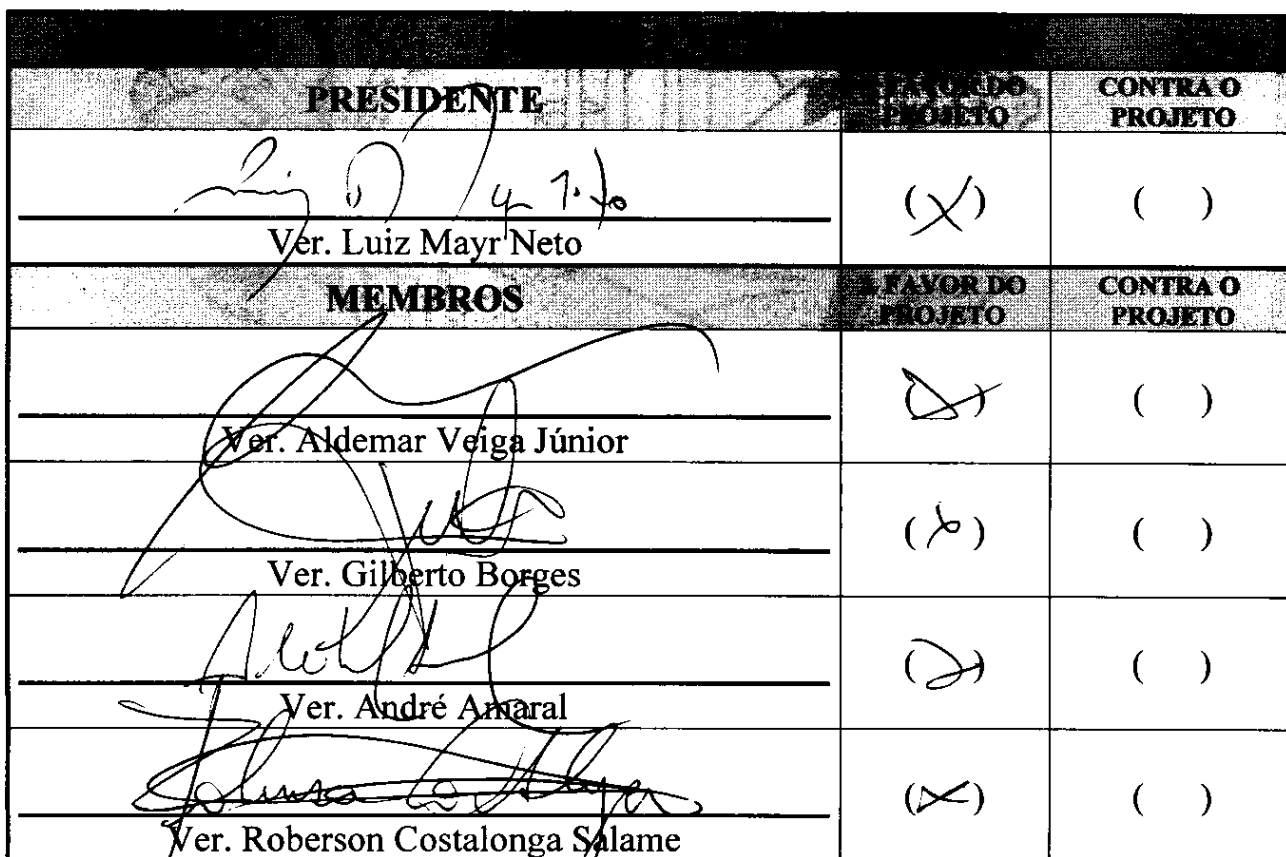 PRESIDENTE
A FAVOR DO PROJETO
CONTRA O PROJETO
(X)
( )
Ver. Luiz Mayr Neto
MEMBROS
A FAVOR DO PROJETO
CONTRA O PROJETO
( )
Ver. Aldemar Veiga Júnior
( )
Ver. Gilberto Borges
( )
Ver. André Amaral
(X)
( )
Ver. Roberson Costalonga Salame